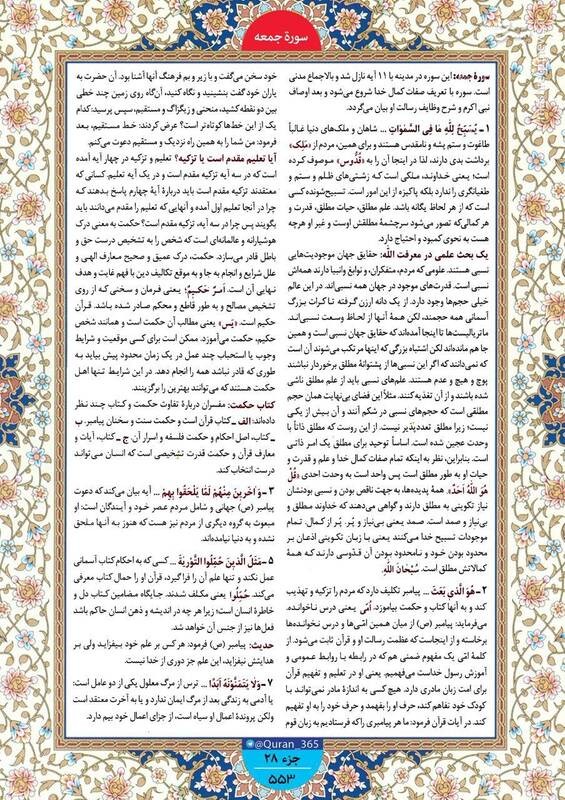 سورهٔ جمعه
سورهٔ جمعه: این سوره در مدینه با ۱۱ آیه نازل شد و بالاجماع مدنی
است. سوره با تعریف صفات کمال خدا شروع می‌شود و بعد اوصاف
نبی اکرم و شرح وظایف رسالت او بیان می‌گردد.
۱- یُسَبِّحُ لِلَّهِ مَا فِی السَّمٰوَاتِ ... شاهان و ملک‌های دنیا غالباً
طاغوت و ستم پشه و نامقدس هستند و برای همین، مردم از «مَلِک»
برداشت بدی دارند، لذا در اینجا آن را به «قُدُّوس» موصوف کرده
است؛ یعنی خداوند، ملکی است که زشتی‌های ظلم و ستم و
طغیانگری را ندارد بلکه پاکیزه از این امور است. تسبیح‌شونده کسی
است که از هر لحاظ یگانه باشد. علم مطلق، حیات مطلق، قدرت و
هر کمالی که تصور می‌شود سرچشمهٔ مطلقش اوست و غیر او هرچه
هست به نحوی کمبود و احتیاج دارد.
یک بحث علمی در معرفت الله: حقایق جهان موجودیت‌هایی
نسبی هستند. علومی که مردم، متفکران، و نوابغ وانبیا دارند همه‌اش
نسبی است. قدرت‌های موجود در جهان همه نسبی‌اند. در این عالم
خیلی حجم‌ها وجود دارد. از یک دانه ارزن گرفته تا کرات بزرگ
آسمانی همه حجمند، لکن همهٔ آنها از لحاظ وسعت نسبی‌اند.
ماتریالیست‌ها تا اینجا آمده‌اند که حقایق جهان نسبی است و همین
جا هم مانده‌اند لکن اشتباه بزرگی که اینها مرتکب می‌شوند آن است
که نمی‌دانند که اگر این نسبی‌ها از پشتوانهٔ مطلق برخوردار نباشند
پوچ و هیچ و عدم هستند. علم‌های نسبی باید از علم مطلق ناشی
شده باشند و از آن تغذیه کنند. مثلاً این فضای بی‌نهایت همان حجم
مطلقی است که حجم‌های نسبی در شکم آنند و آن بیش از یکی
نیست؛ زیرا مطلق تعددپذیر نیست. از این روست که مطلق ذاتاً با
وحدت عجین شده است. اساساً توحید برای مطلق یک امر ذاتی
است. بنابراین، نظر به اینکه تمام صفات کمال خدا و علم و قدرت و
حیات او به طور مطلق است پس واحد است به وحدت احدی «قُلْ
هُوَ اللّٰهُ اَحَدٌ». همهٔ پدیده‌ها، به جهت ناقص بودن و نسبی بودنشان
نیاز تکوینی به مطلق دارند و گواهی می‌دهند که خداوند مطلق و
بی‌نیاز و صمد است. صمد یعنی بی‌نیاز و پُر. پُر از کمال. تمام
موجودات تسبیح خدا می‌کنند یعنی با زبان تکوینی اذعان بر
محدود بودن خود و نامحدود بودن آن قدّوسی دارند که همهٔ
کمالاتش مطلق است. سُبْحَانَ اللّٰهِ.
۲- هُوَ الَّذِی بَعَثَ ... پیامبر تکلیف دارد که مردم را تزکیه و تهذیب
کند و به آنها کتاب و حکمت بیاموزد. اُمّی یعنی درس نخوانده.
می‌فرماید: پیامبر (ص) از میان همین اُمّی‌ها و درس نخوانده‌ها
برخاسته و از اینجاست که عظمت رسالت او و قرآن ثابت می‌شود. از
کلمهٔ اُمّی یک مفهوم ضمنی هم که در رابطه با روابط عمومی و
آموزش رسول خداست می‌فهمیم. یعنی او در تعلیم و تفهیم قرآن
برای امت زبان مادری دارد. هیچ کسی به اندازهٔ مادر نمی‌تواند با
کودک خود تفاهم کند، حرف او را بفهمد و حرف خود را به او تفهیم
کند. در آیات قرآن فرمود: ما هر پیامبری را که فرستادیم به زبان قوم
خود سخن می‌گفت و با زیر و بم فرهنگ آنها آشنا بود. آن حضرت به
یاران خود گفت بنشینید و نگاه کنید، آن‌گاه روی زمین چند خطی
بین دو نقطه کشید، منحنی و زیگزاگ و مستقیم، سپس پرسید: کدام
یک از این خط‌ها کوتاه‌تر است؟ عرض کردند: خط مستقیم، بعد
فرمود: من شما را به همین راه نزدیک و مستقیم دعوت می‌کنم.
آیا تعلیم مقدم است یا تزکیه؟ تعلیم و تزکیه در چهار آیه آمده
است که در سه آیه تزکیه مقدم است و در یک آیه تعلیم. کسانی که
معتقدند تزکیه مقدم است باید دربارهٔ آیهٔ چهارم پاسخ بدهند که
چرا در آنجا تعلیم اول آمده و آنهایی که تعلیم را مقدم می‌دانند باید
بگویند پس چرا در سه آیه، تزکیه مقدم است؟ حکمت به معنی درک
هوشیارانه و عالمانه‌ای است که شخص را به تشخیص درست حق و
باطل قادر می‌سازد. حکمت، درک عمیق و صحیح معارف الهی و
علل شرایع و انجام به جا و به موقع تکالیف دین با فهم غایت و هدف
نهایی آن است. اَمرٌ حَکیمٌ؛ یعنی فرمان و سخنی که از روی
تشخیص مصالح و به طور قاطع و محکم صادر شده باشد. قرآن
حکیم است. «یٰس» یعنی مطالب آن حکمت است و همانند شخص
حکیم، حکمت می‌آموزد. ممکن است برای کسی موقعیت و شرایط
وجوب یا استحباب چند عمل در یک زمان محدود پیش بیاید به
طوری که قادر نباشد همه را انجام دهد. در این شرایط تنها اهل
حکمت هستند که می‌توانند بهترین را برگزینند.
کتاب حکمت: مفسران دربارهٔ تفاوت حکمت و کتاب چند نظر
داده‌اند: الف ـ کتاب قرآن است و حکمت سنت و سخنان پیامبر. ب
ـ کتاب، اصل احکام و حکمت فلسفه و اسرار آن. ج ـ کتاب، آیات و
معارف قرآن و حکمت قدرت تشخیصی است که انسان می‌تواند
درست انتخاب کند.
۳- وَآخَرِینَ مِنْهُمْ لَمَّا یَلْحَقُوا بِهِمْ ... آیه بیان می‌کند که دعوت
پیامبر (ص) جهانی و شامل مردم عصر خود و آیندگان است؛ او
مبعوث به گروه دیگری از مردم نیز هست که هنوز به آنها ملحق
نشده و به دنیا نیامده‌اند.
۵- مَثَلُ الَّذِینَ حُمِّلُوا التَّوْرٰیةَ ... کسی که به احکام کتاب آسمانی
عمل نکند و تنها علم آن را فراگیرد، قرآن او را حمال کتاب معرفی
می‌کند. حُمِّلُوا یعنی مکلف شدند. جایگاه مضامین کتاب دل و
خاطرهٔ انسان است؛ زیرا هر چه در اندیشه و ذهن انسان حاکم باشد
فعل‌ها نیز از جنس آن خواهد شد.
حدیث: پیامبر (ص) فرمود: هر کس بر علم خود بیفزاید ولی بر
هدایتش نیفزاید، این علم جز دوری از خدا نیست.
۷- وَلَا یَتَمَنَّوْنَهُ اَبَدًا ... ترس از مرگ معلول یکی از دو عامل است:
یا آدمی به زندگی بعد از مرگ ایمان ندارد و یا به آخرت معتقد است
ولکن پروندهٔ اعمال او سیاه است، از جزای اعمال خود بیم دارد.
@Quran_365
جزء ۲۸
۵۵۳